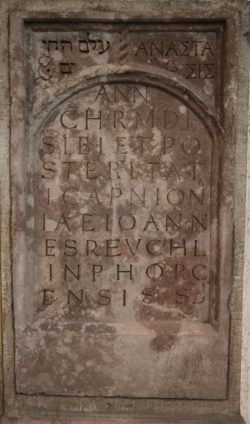 עלם החיי ΑΝΑΣΤΑ
ים ΣΙΣ
ANN
CHR MDI
SIBI ET PO
STERITAT
I CAPNION
IAE IOANN
ES REVCHL
IN PHORC
ENSIS S